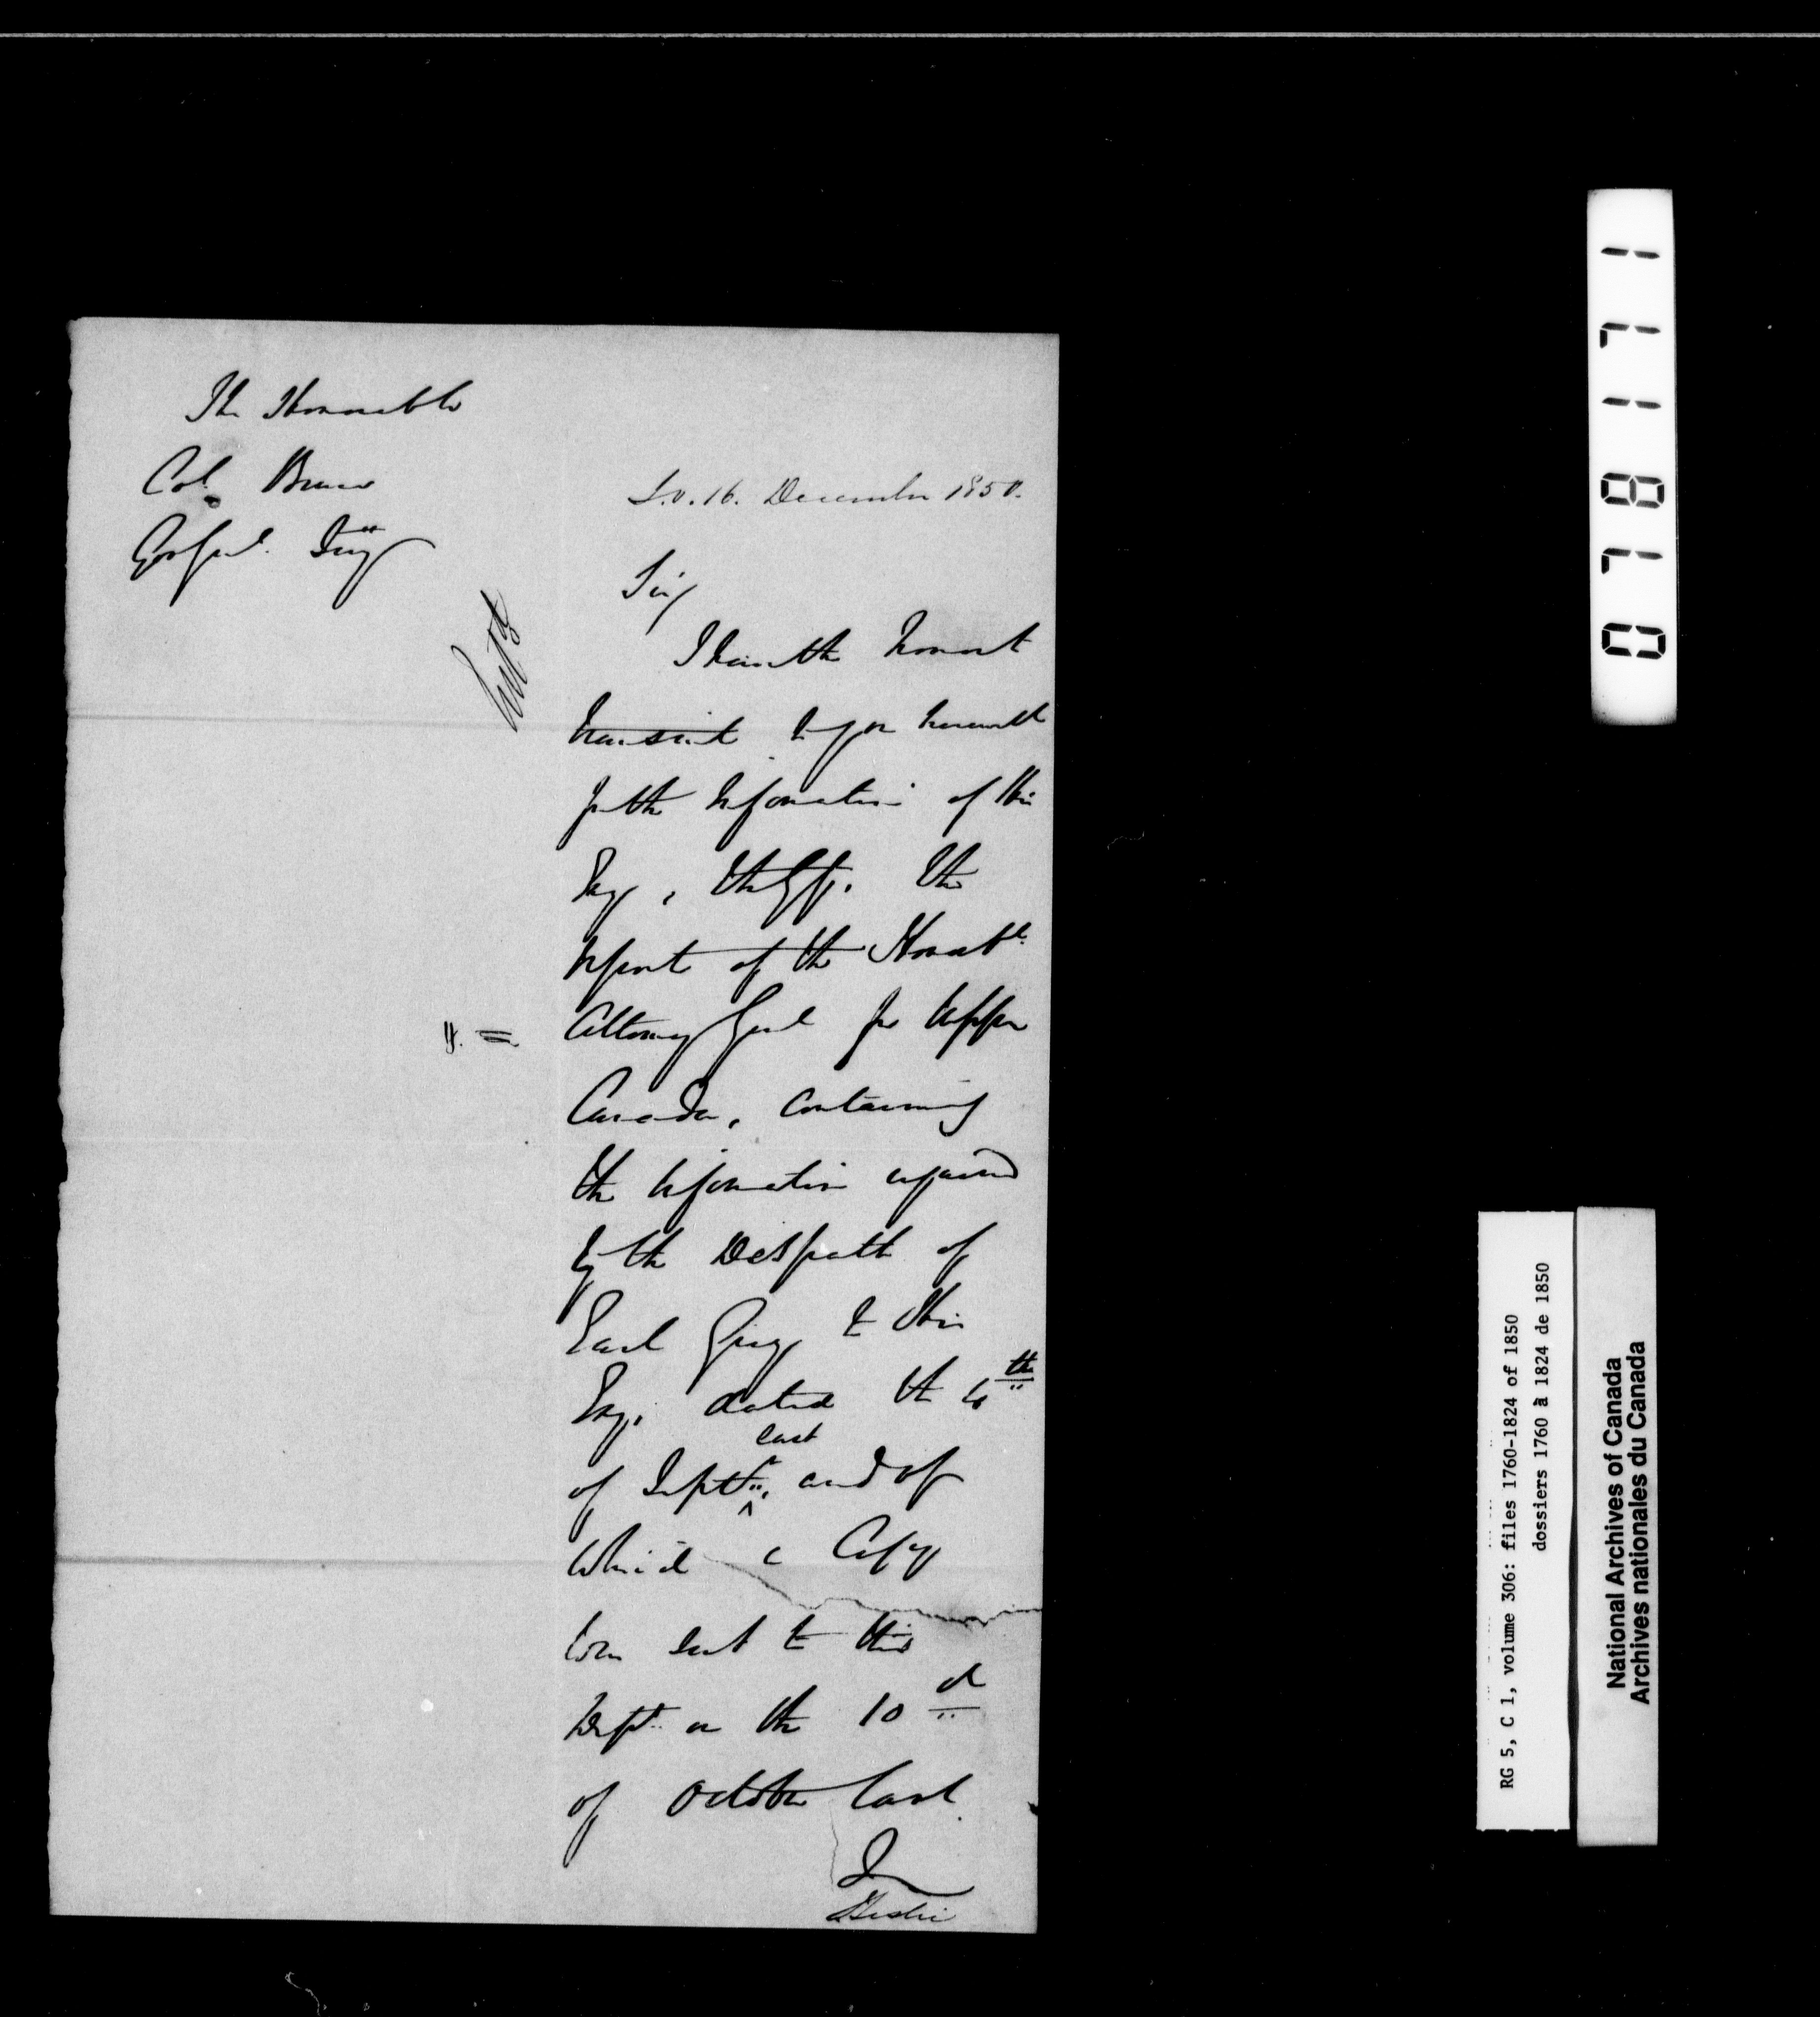 The Honorable
Col. Bruce
S.O. 16. December 1850.
Sir,
I have the honor to
transmit to you herewith
for the information of His
Exy. the the
report of the Honorable
Attorney Genl for Upper
Canada, containing
the information required
by the Despatch of
Earl Grey to His
Exy. dated the 6th
last
of Septr. and of
which a Copy
was sent to this
Dept. on the 10th
of October last.
I
0178171
RG 5, C 1, volume 306: files 1760-1824 of 1850
dossiers 1760 à 1824 de 1850
National Archives of Canada
Archives nationales du Canada